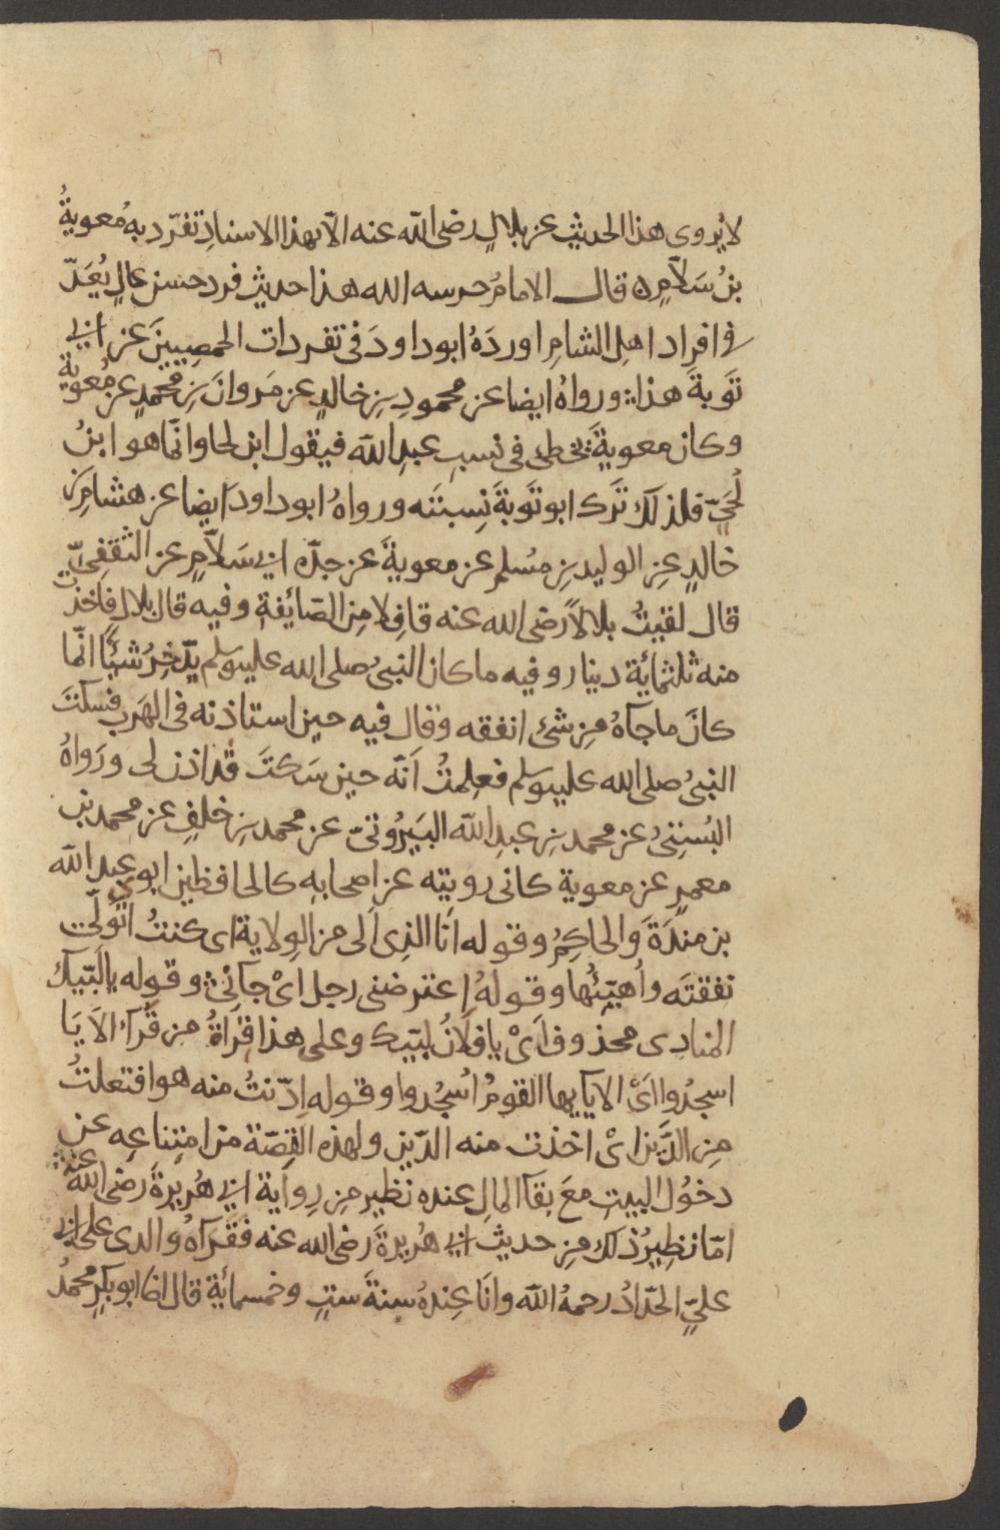 لا يُروى هذا الحديث عن بلالٍ رضى الله عنه الّا بهذا الاسنادِ تفرّد به مُعوية
بنُ سَلّامٍ ٥ قال الامامُ حرسه الله هذا حديث فرد حسن عالٍ يُعَدّ
فى افراد اهل الشامِ اوردَهُ ابو داودَ فى تفردات الحمصيينَ عن ابى
تَوبةَ هذا ورواهُ ايضا عن محمودِ بنِ خالدٍ عن مَروانَ بنِ محمدٍ عن مُعوية
وكان معويةَ يخطى فى نسبِ عبدِ الله فيقول ابن لحا وانّما هو ابنُ
لُحَىّ فلذلك تَرك ابو تَوبةَ نِسبتَه ورواهُ ابو داودَ ايضا عن هشامِ بن
خالدٍ عنِ الوليد بنِ مُسلمٍ عن معويةَ عن جدّه ابى سَلّامٍ عن الثقفِىّ
قال لقيتُ بلالاً رضى الله عنه قافِلا مِن الصّايفةِ وفيه قال بلال فاخذت
منه ثلثمائة دينار وفيه ما كان النبىُ صلى الله عليه وسلم يدّخِرُ شيئًا انّما
كانَ ما جآهُ مِن شئ انفقه وقال فيه حين استاذنه فى الهَرب فسكتَ
النبىُ صلى الله عليه وسلم فعلِمتُ اَنّه حين سَكتَ قد اذن لى ورَواهُ
البُستىُ عن محمد بنِ عبدِ الله البَيرُوتىّ عن محمد بنِ خلفٍ عن محمد بن
معمرٍ عن معوية كانى رويته عن اصحابهِ كالحافظين ابوى عبدِ الله
بن مندَةَ والحاكِمُ وقوله انَا الذِى اَلى من الوِلاية اى كنتُ اتولّى
نفقتَه واُهيّئها وقولهُ اعترضنى رجل اىْ جآنى وقوله يا لبّيك
المنادِى محذوف اَىْ يا فلانُ لبّيك وعلى هذا قِراةُ من قَرآ الا يَا
اسجدُوا اىْ الا يآ يها القومُ اسُجدوا وقوله اِدّنتُ منه هو افتعلتُ
مِن الدَّين اىْ اخذت منه الدّين ولهذه القِصّة من امتِناعِه عن
دخُول البيتِ معَ بقآ المالِ عنده نظير مِن رِواية ابى هُريرةَ رضى الله عنه
امّا نظِيرُ ذلك مِن حديث ابى هُريرةَ رضى الله عنه فقَرآهُ والدى على ابى
علىٍّ الحدّادُ رحمهُ الله وانَا عِندهُ سنةَ ستٍ وخمسمائةٍ قال انا ابو بكرٍ محمدُ